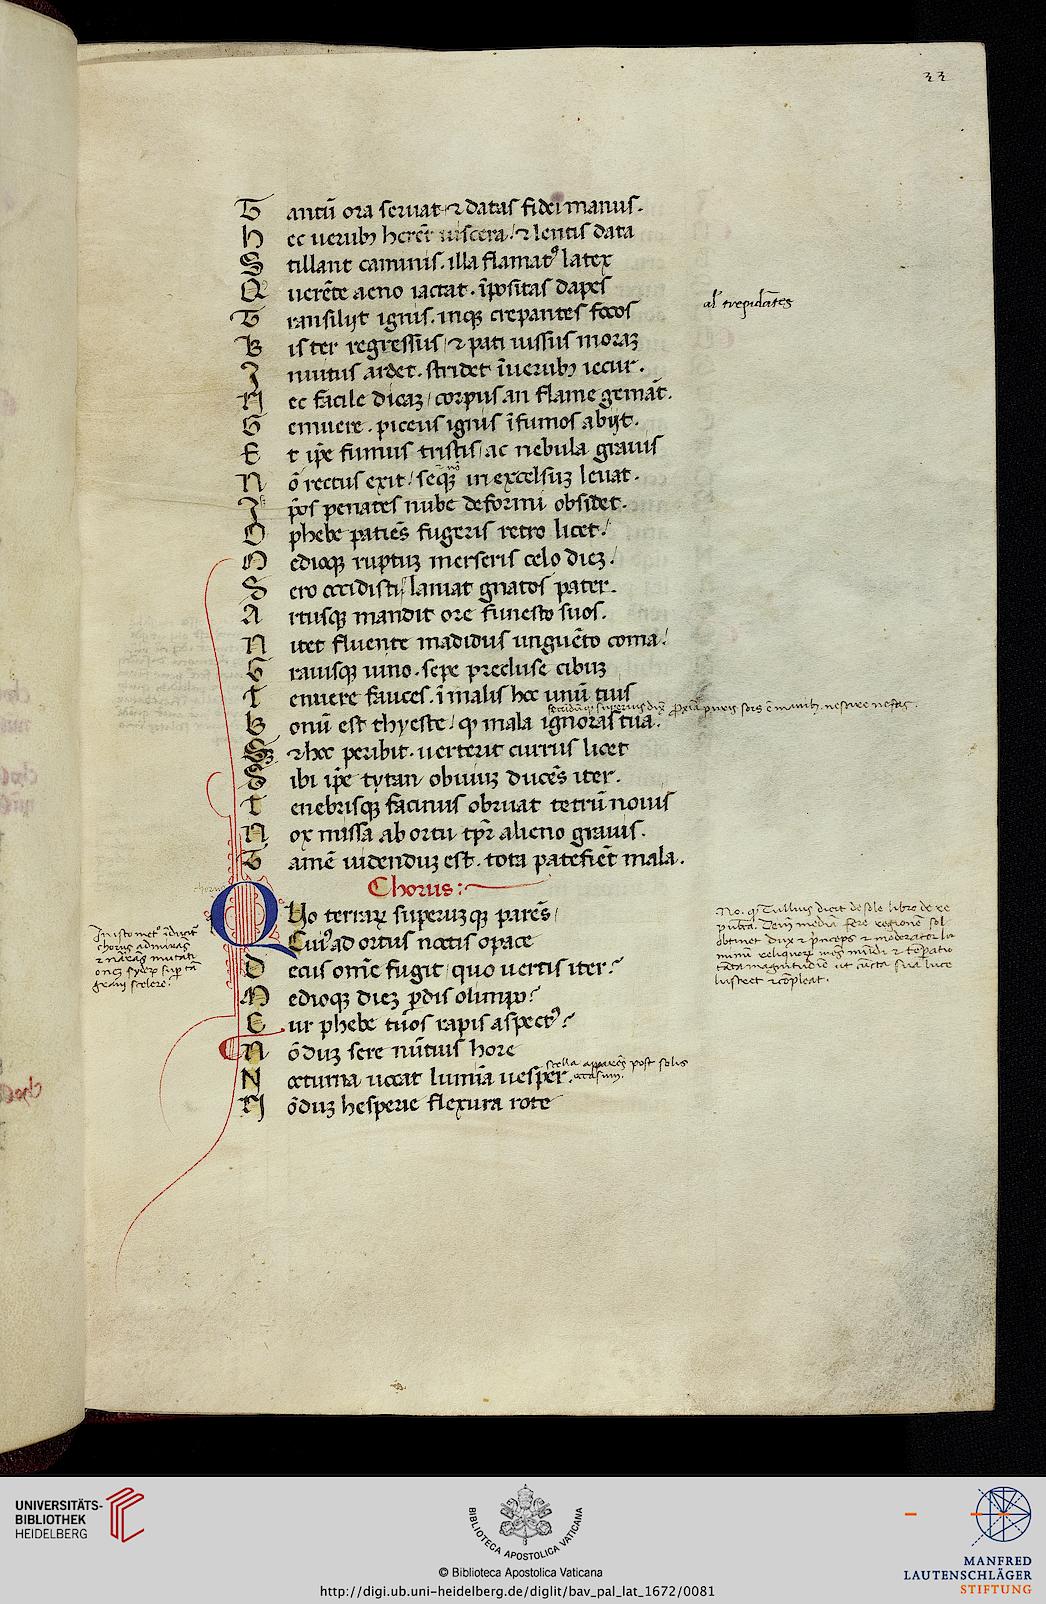 33
Tantū ora seruat ⁊ datas fidei manus.
hec uerubꝫ herēt uiscera ⁊ lentis data
Stillant caminis. illa flamatꝰ latex
Querēte aeno iactat. īpositas dapes
al' trepidātes
Transilijt ignis. inqꝫ crepantes focos
Bis ter regressus / ⁊ pati iussus moraꝫ
Inuitus ardet. stridet ī uerubꝫ iecur.
Nec facile dicaꝫ / corpus an flame gemāt.
Gemuere. piceus ignis ī fumos abijt.
Et ip̄e fumus tristis / ac nebula grauis
Nō rectus exit / seqꝫ in excelsuꝫ leuat.
Ip̄os penates nube deformi obsidet.
O phebe patiēs fugeris retro licet /
Medioqꝫ ruptuꝫ merseris celo dieꝫ /
Sero occidisti / laniat gnatos pater.
Artusqꝫ mandit ore funesto suos.
Nitet fluente madidus unguēto coma /
Grauisqꝫ uino. sepe precluse cibuꝫ
Tenuere fauces. ī malis hoc unū tuis
Bonū est thyeste / qꝫ mala ignoras tua.
S⁊ hoc peribit. uerterit currus licet
Sibi ip̄e tytan obuiuꝫ ducēs iter.
Tenebrisqꝫ facinus obruat tetrū nouis
Nox missa ab ortu tp̄r alieno grauis.
Tamē uidenduꝫ est. tota patefiēt mala.
Chorus:
chorus
QUo terraꝝ superuꝫqꝫ parēs /
Cuiꝰ ad ortus noctis opace
Decus omē fugit / quo uertis iter?
Medioqꝫ dieꝫ ꝑdis olimpo?
Cur phebe tuos rapis aspectꝰ?
Nōduꝫ sere nūtius hore
Nocturna uocat lumīa uesper.
stella apparēs post solis
occasum.
Nōduꝫ hesperie flexura rote
In isto met° īducit'
chorus admirās
⁊ nārās mutati
onē syderꝝ supꝑ tā
graui scelere.
No. qꝫ Tullius dicit de sole libro de re
publica. Dein̄ mediā fere regionē sol
obtinet dux ⁊ p̄nceps ⁊ moderator lu
minū reliquorꝝ mēs mūdi ⁊ tēperatio
tāta magnitudīe ut cūcta sua luce
lustret ⁊ cōpleat.
UNIVERSITÄTS-
BIBLIOTHEK
HEIDELBERG
BIBLIOTECA APOSTOLICA VATICANA
© Biblioteca Apostolica Vaticana
http://digi.ub.uni-heidelberg.de/diglit/bav_pal_lat_1672/0081
MANFRED
LAUTENSCHLÄGER
STIFTUNG